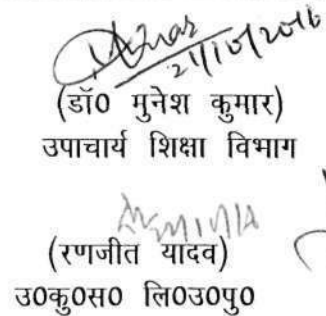 21/10/2016
(डॉ0 मुनेश कुमार)
उपाचार्य शिक्षा विभाग
(रणजीत यादव)
उ0कु0स0 लि0उ0पु0